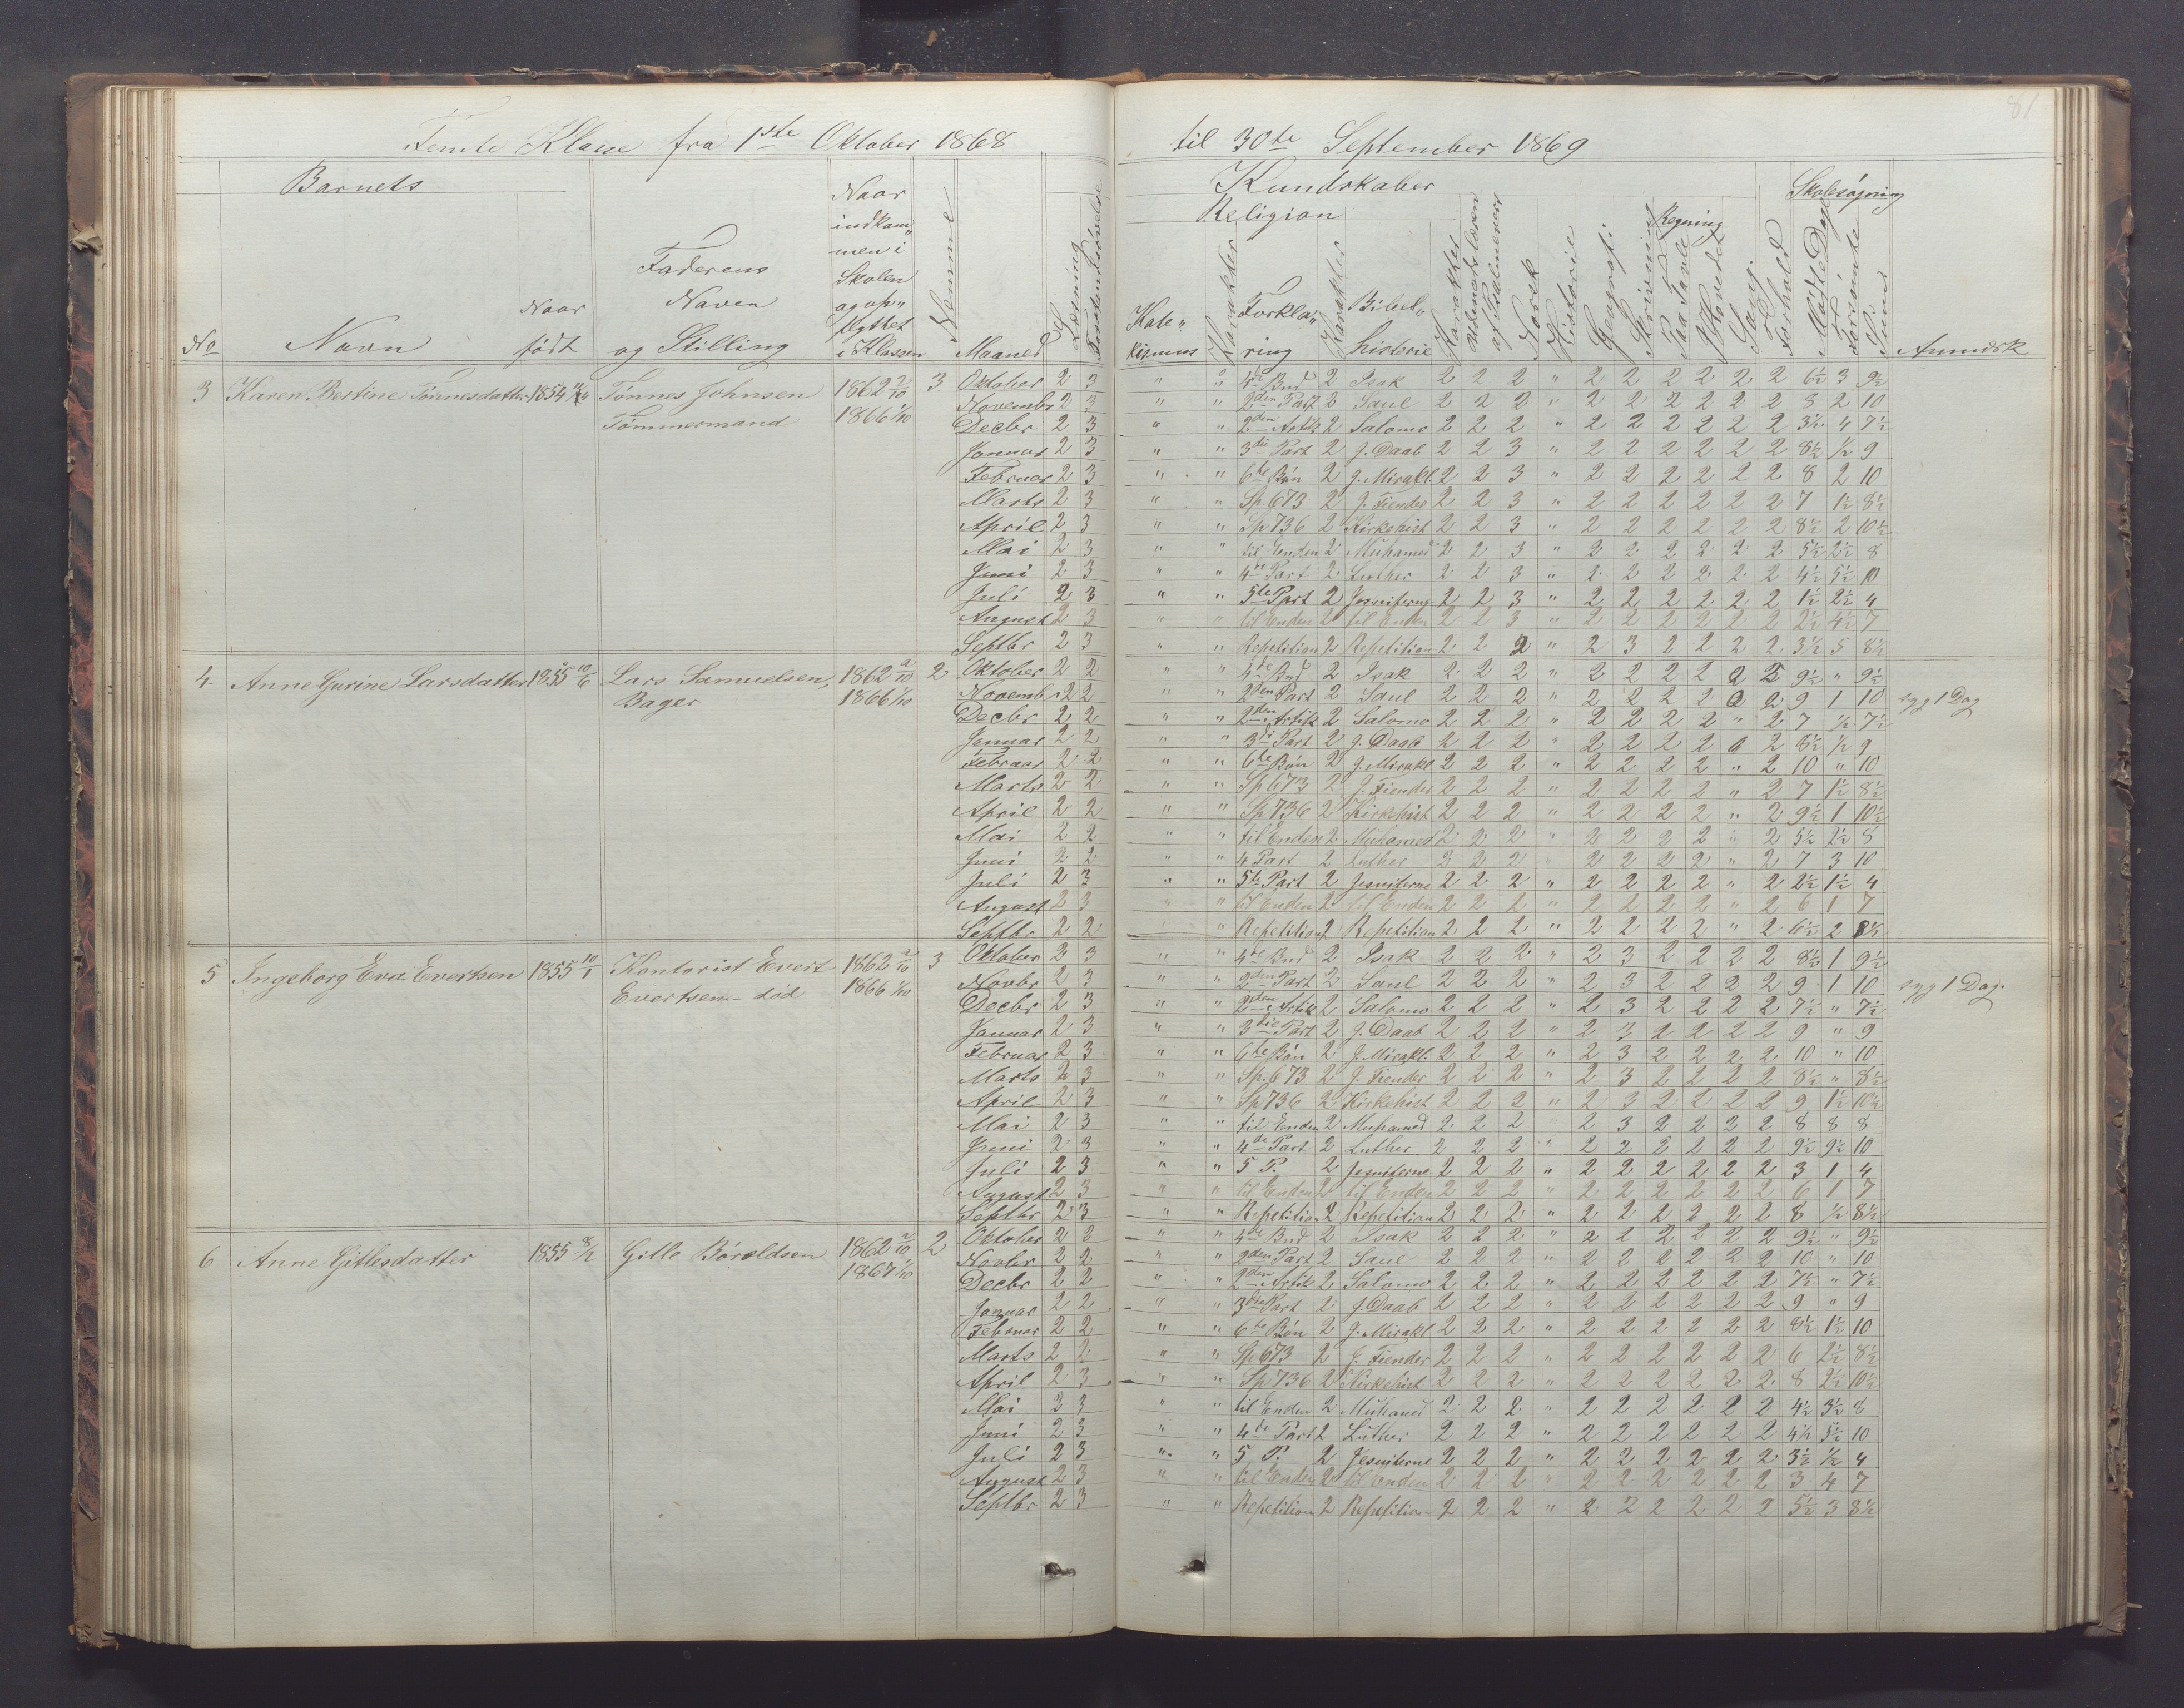 81
Femte Klasse fra 1ste Oktober 1868 til 30te September 1869
Barnets Kundskaber Skolesøgning
Religion Regning
No Navn Naar født Faderens Navn og Stilling Naar indkommen i Skolen og opflyttet i Klassen Nemme Maaned Læsning Forstandsøvelse Katekismus Karakter Forklaring Karakter Bibelhistorie Karakter Udenadslæsen af Psalmevers Norsk Historie Geografi Skrivning Paa Tavle I Hovedet Sang Forhold Mødte Dage Forsømte Sum Anmdsk
3 Karen Bertine Tønnesdatter 1854 Tønnes Johnsen 1862 2/10 3 Oktober 2 3 " " 4de Bud 2 Isak 2 2 2 " 2 2 2 2 2 2 6½ 3 9½
Tømmermand 1866 1/10 Novembr 2 3 " " 2den Part 2 Saul 2 2 2 " 2 2 2 2 2 2 8 2 10
Decbr 2 3 " " 2den Artik 2 Salomo 2 2 2 " 2 2 2 2 2 2 3½ 4 7½
Januar 2 3 " " 3die Part 2 J. Daab 2 2 3 " 2 2 2 2 2 2 8½ ½ 9
Februar 2 3 " " 6te Bøn 2 J. Mirakl. 2 2 3 " 2 2 2 2 2 2 8 2 10
Marts 2 3 " " Sp. 673 2 J. Fiender 2 2 3 " 2 2 2 2 2 2 7 1½ 8½
April 2 3 " " Sp 736 2 Kirkehist 2 2 3 " 2 2 2 2 2 2 8½ 2 10½
Mai 2 3 " " til Enden 2 Muhamed 2 2 3 " 2 2 2 2 2 2 5½ 2½ 8
Juni 2 3 " " 4de Part 2 Luther 2 2 3 " 2 2 2 2 2 2 4½ 5½ 10
Juli 2 3 " " 5te Part 2 Jesuiterne 2 2 3 " 2 2 2 2 2 2 1½ 2½ 4
August 2 3 " " til Enden 2 til Enden 2 2 3 " 2 2 2 2 2 2 2½ 4½ 7
Septbr 2 3 " " Repetition 2 Repetition 2 2 2 " 2 3 2 2 2 2 3½ 5 8½
4. Anne Gurine Larsdatter 1855 10/6 Lars Samuelsen, 1862 2/10 2 Oktober 2 2 " " 4de Bud 2 Isak 2 2 2 " 2 2 2 2 2 2 9½ " 9½
Bager 1866 1/10 Novembr 2 2 " " 2den Part 2 Saul 2 2 2 " 2 2 2 2 2 2 9 1 10 syg 1 Dag
Decbr 2 2 " " 2den Artik 2 Salomo 2 2 2 " 2 2 2 2 " 2 7 ½ 7½
Januar 2 2 " " 3di Part 2 J. Daab 2 2 2 " 2 2 2 2 2 8½ ½ 9
Februar 2 2 " " 6te Bøn 2 J. Mirakl 2 2 2 " 2 2 2 2 " 2 10 " 10
Marts 2 2 " " Sp 673 2 J. Fiender 2 2 2 " 2 2 2 2 " 2 7 1½ 8½
April 2 2 " " Sp 736 2 Kirkehist 2 2 2 " 2 2 2 2 " 2 9½ 1 10½
Mai 2 2 " " til Enden 2 Muhamed 2 2 2 " 2 2 2 2 " 2 5½ 2½ 8
Juni 2 2 " " 4 Part 2 Luther 2 2 2 " 2 2 2 2 " 2 7 3 10
Juli 2 3 " " 5te Part 2 Jesuiterne 2 2 2 " 2 2 2 2 " 2 2½ 1½ 4
August 2 3 " " til Enden 2 til Enden 2 2 2 " 2 2 2 2 " 2 6 1 7
Septbr 2 2 " " Repetition 2 Repetition 2 2 2 " 2 2 2 2 " 2 6½ 2 8½
5 Ingeborg Eva Evertsen 1855 10/1 Kontorist Evert 1862 2/10 3 Oktober 2 3 " " 4de Bud 2 Isak 2 2 2 " 2 3 2 2 2 2 8½ 1 9½
Evertsen - død 1866 1/10 Novbr 2 3 " " 2den Part 2 Saul 2 2 2 " 2 3 2 2 2 2 9 1 10 syg 1 Dag.
Decbr 2 3 " " 2den Artik 2 Salomo 2 2 2 " 2 3 2 2 2 2 7½ " 7½
Januar 2 3 " " 3die Part 2 J. Daab 2 2 2 " 2 3 2 2 2 2 9 " 9
Februar 2 3 " " 6te Bøn 2 J. Mirakl. 2 2 2 " 2 3 2 2 2 2 10 " 10
Marts 2 3 " " Sp. 673 2 J. Fiender 2 2 2 " 2 3 2 2 2 2 8½ " 8½
April 2 3 " " Sp 736 2 Kirkehist 2 2 2 " 2 3 2 2 2 2 9 1½ 10½
Mai 2 3 " " til Enden 2 Muhamed 2 2 2 " 2 3 2 2 2 2 8 8 8
Juni 2 3 " " 4de Part 2 Luther 2 2 2 " 2 2 2 2 2 2 9½ 9½ 10
Juli 2 3 " " 5 P. 2 Jesuiterne 2 2 2 " 2 2 2 2 2 2 3 1 4
August 2 3 " " til Enden 2 til Enden 2 2 2 " 2 2 2 2 2 2 6 1 7
Septbr 2 3 " " Repetition 2 Repetition 2 2 2 " 2 2 2 2 2 2 8 ½ 8½
6 Anne Gitlesdatter 1855 8/2 Gitle Böroldsen 1862 2/10 2 Oktober 2 2 " " 4de Bud 2 Isak 2 2 2 " 2 2 2 2 2 2 9½ " 9½
1867 1/10 Novbr 2 2 " " 2den Part 2 Saul 2 2 2 " 2 2 2 2 2 2 10 " 10
Decbr 2 2 " " 2den Artik 2 Salomo 2 2 2 " 2 2 2 2 2 2 7½ " 7½
Januar 2 2 " " 3die Part 2 J. Daab 2 2 2 " 2 2 2 2 2 2 9 " 9
Februar 2 2 " " 6te Bøn 2 J. Mirakl 2 2 2 " 2 2 2 2 2 2 8½ 1½ 10
Marts 2 2 " " Sp 673 2 J. Fiender 2 2 2 " 2 2 2 2 2 2 6 2½ 8½
April 2 3 " " Sp 736 2 Kirkehist 2 2 2 " 2 2 2 2 2 2 8 2½ 10½
Mai 2 3 " " til Enden 2 Muhamed 2 2 2 " 2 2 2 2 2 2 4½ 3½ 8
Juni 2 3 " " 4de Part 2 Luther 2 2 2 " 2 2 2 2 2 2 4½ 5½ 10
Juli 2 3 " " 5 P. 2 Jesuiterne 2 2 2 " 2 2 2 2 2 2 3½ ½ 4
August 2 3 " " til Enden 2 til Enden 2 2 2 " 2 2 2 2 2 2 3 4 7
Septbr 2 3 " " Repetition 2 Repetition 2 2 2 " 2 2 2 2 2 2 5½ 3 8½